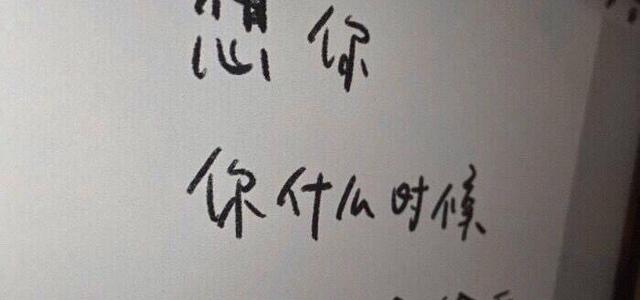 想你
你什么时候